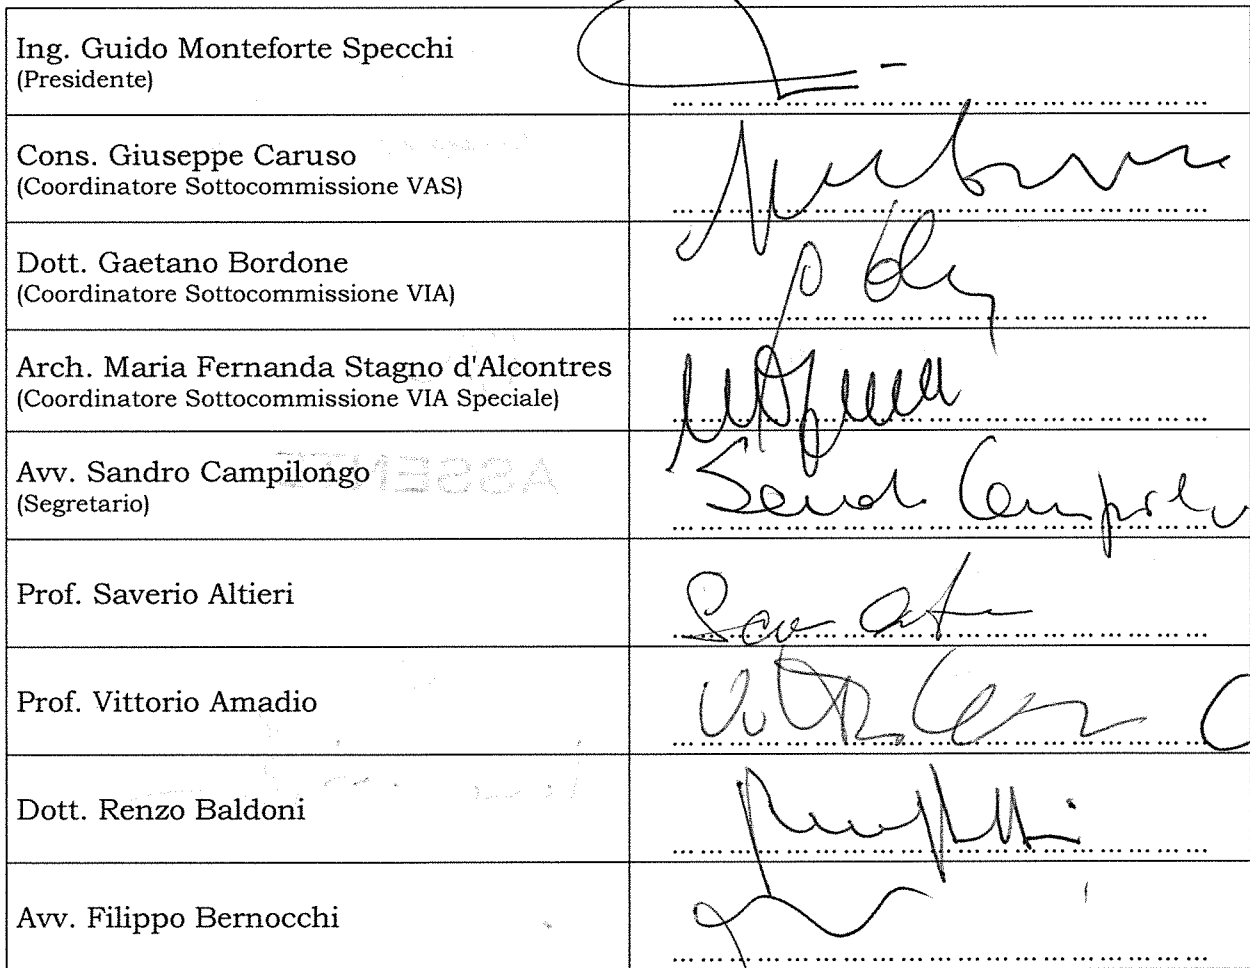 Ing. Guido Monteforte Specchi
(Presidente)
Cons. Giuseppe Caruso
(Coordinatore Sottocommissione VAS)
Dott. Gaetano Bordone
(Coordinatore Sottocommissione VIA)
Arch. Maria Fernanda Stagno d'Alcontres
(Coordinatore Sottocommissione VIA Speciale)
Avv. Sandro Campilongo
(Segretario)
ASSENTE
Prof. Saverio Altieri
Prof. Vittorio Amadio
Dott. Renzo Baldoni
Avv. Filippo Bernocchi